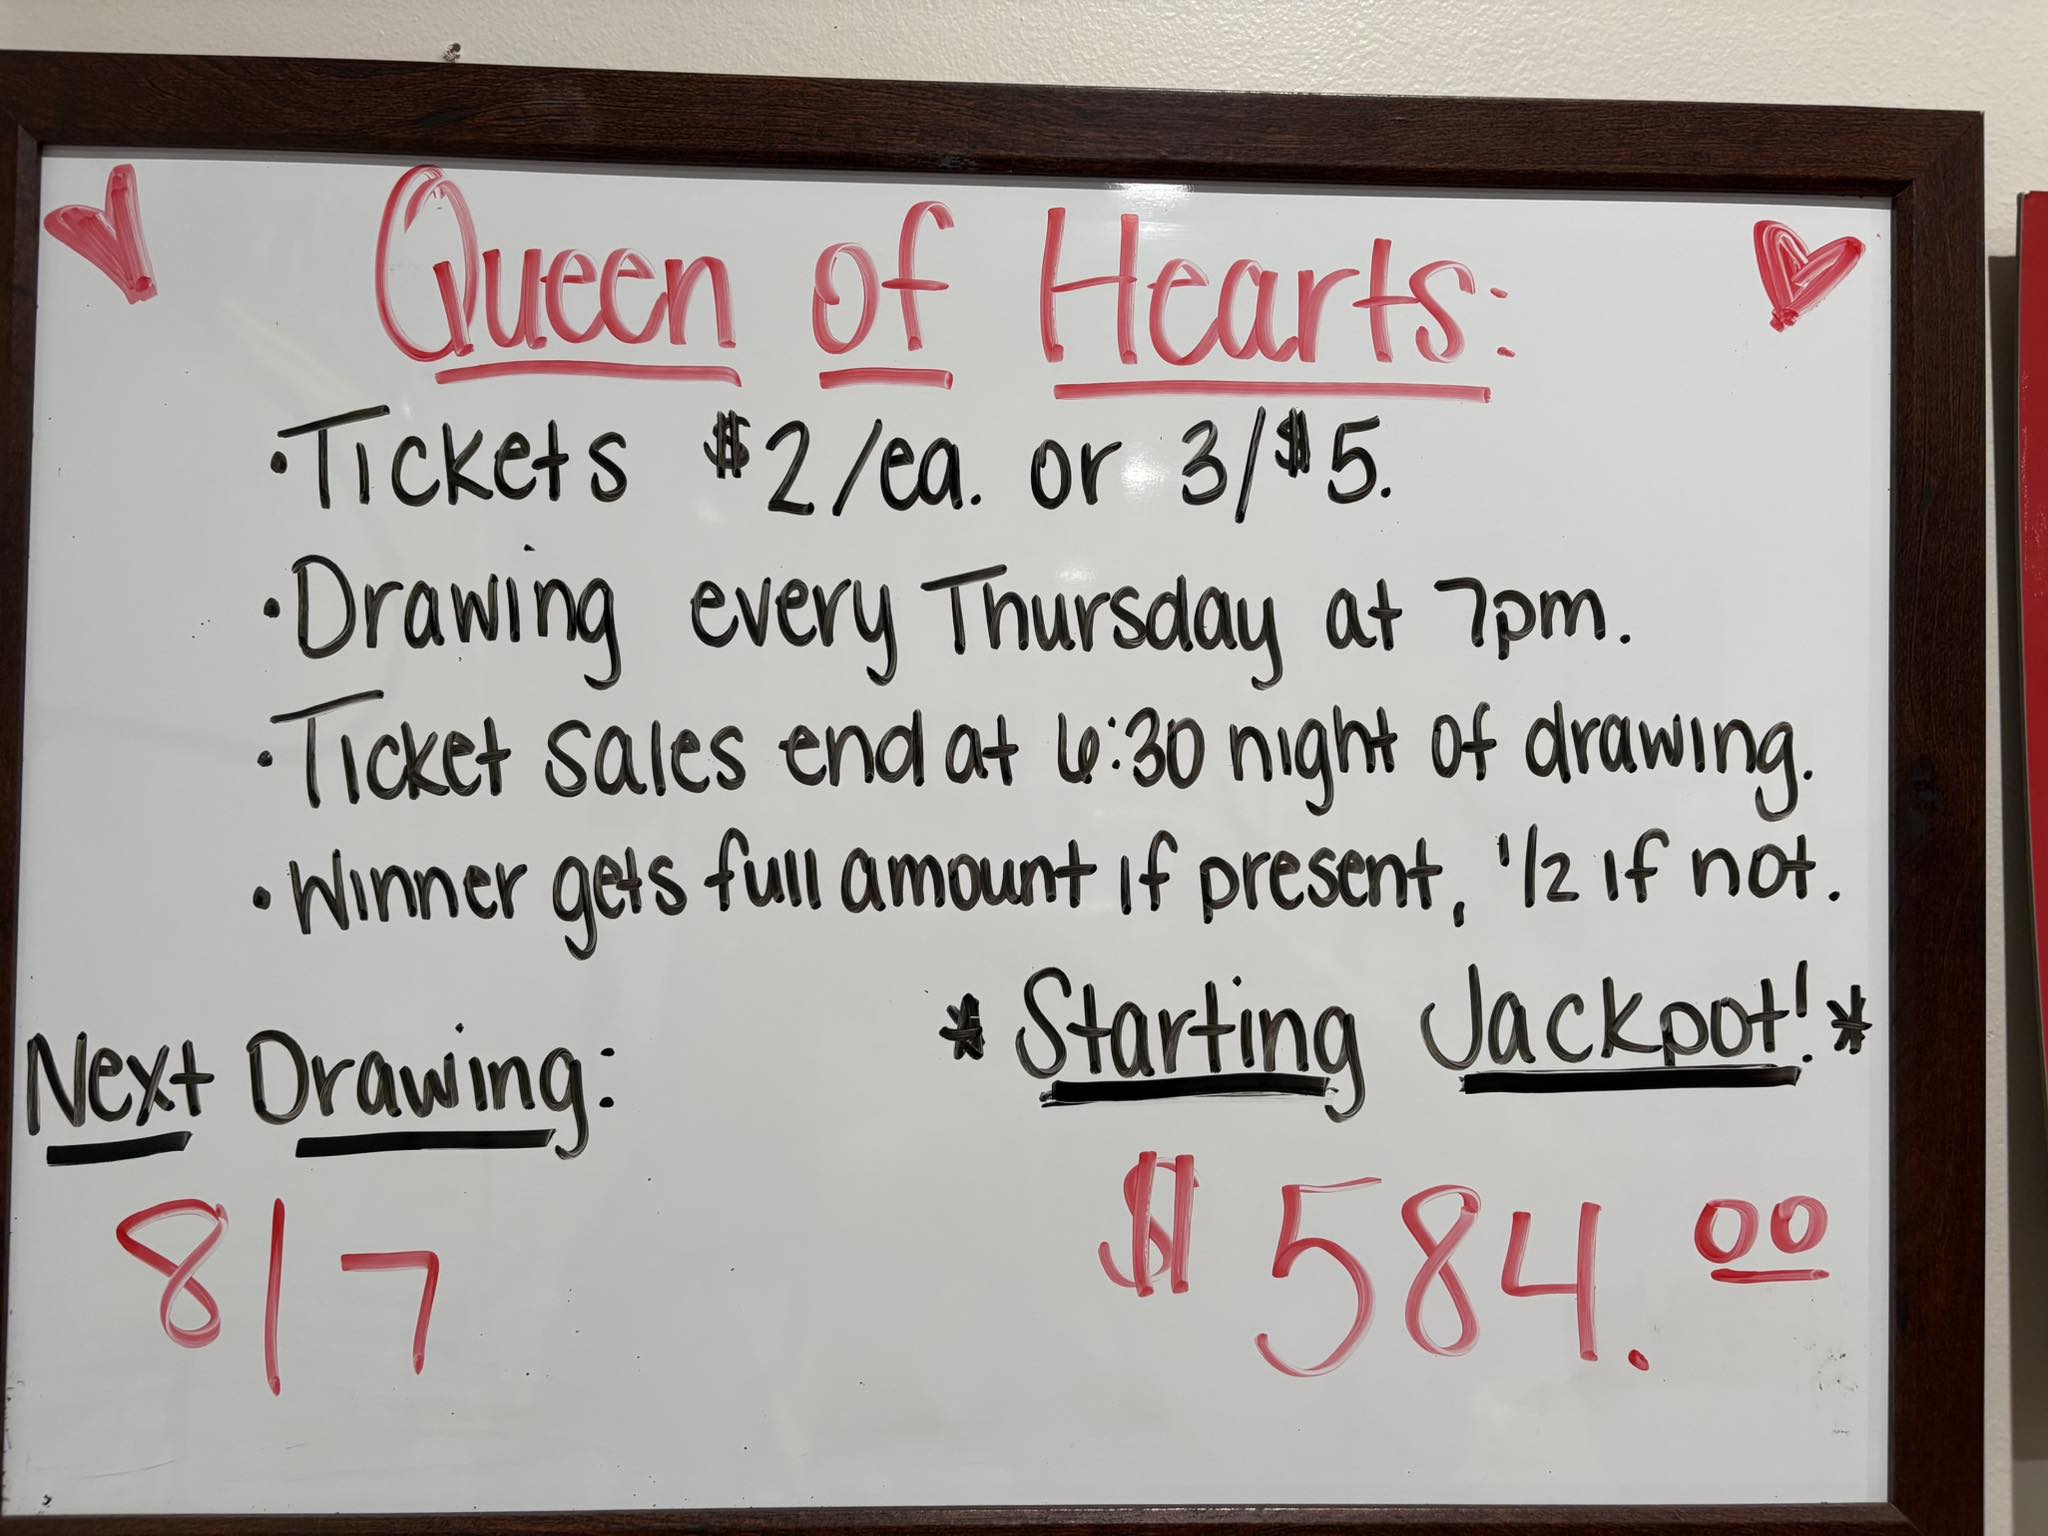 Queen of Hearts:
• Tickets $2/ea. or 3/$5.
• Drawing every Thursday at 7pm.
• Ticket sales end at 6:30 night of drawing.
• Winner gets full amount if present, 1/2 if not.
Next Drawing:
8/7
* Starting Jackpot! *
$584.00